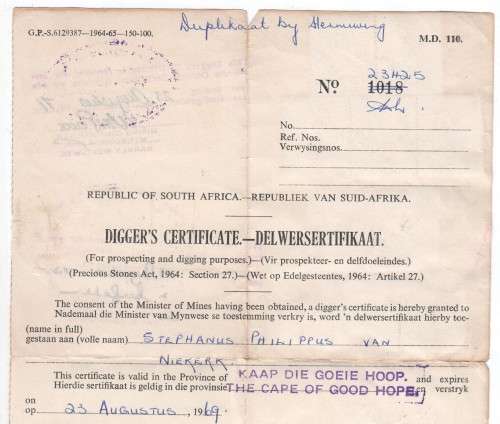 Duplikaat by
G.P.-S.6129387—1964-65—150-100.
M.D. 110.
23425
No 1018
No.
Ref. Nos.
Verwysingsnos.
REPUBLIC OF SOUTH AFRICA.—REPUBLIEK VAN SUID-AFRIKA.
DIGGER'S CERTIFICATE.—DELWERSERTIFIKAAT.
(For prospecting and digging purposes.)—(Vir prospekteer- en delfdoeleindes.)
(Precious Stones Act, 1964: Section 27.)—(Wet op Edelgesteentes, 1964: Artikel 27.)
The consent of the Minister of Mines having been obtained, a digger's certificate is hereby granted to
Nademaal die Minister van Mynwese se toestemming verkry is, word 'n delwersertifikaat hierby toe-
(name in full)
gestaan aan (volle naam) STEPHANUS PHILIPPUS VAN
NIEKERK.
This certificate is valid in the Province of KAAP DIE GOEIE HOOP. and expires
Hierdie sertifikaat is geldig in die provinsie THE CAPE OF GOOD HOPE. en verstryk
on
op 23 AUGUSTUS, 1969.